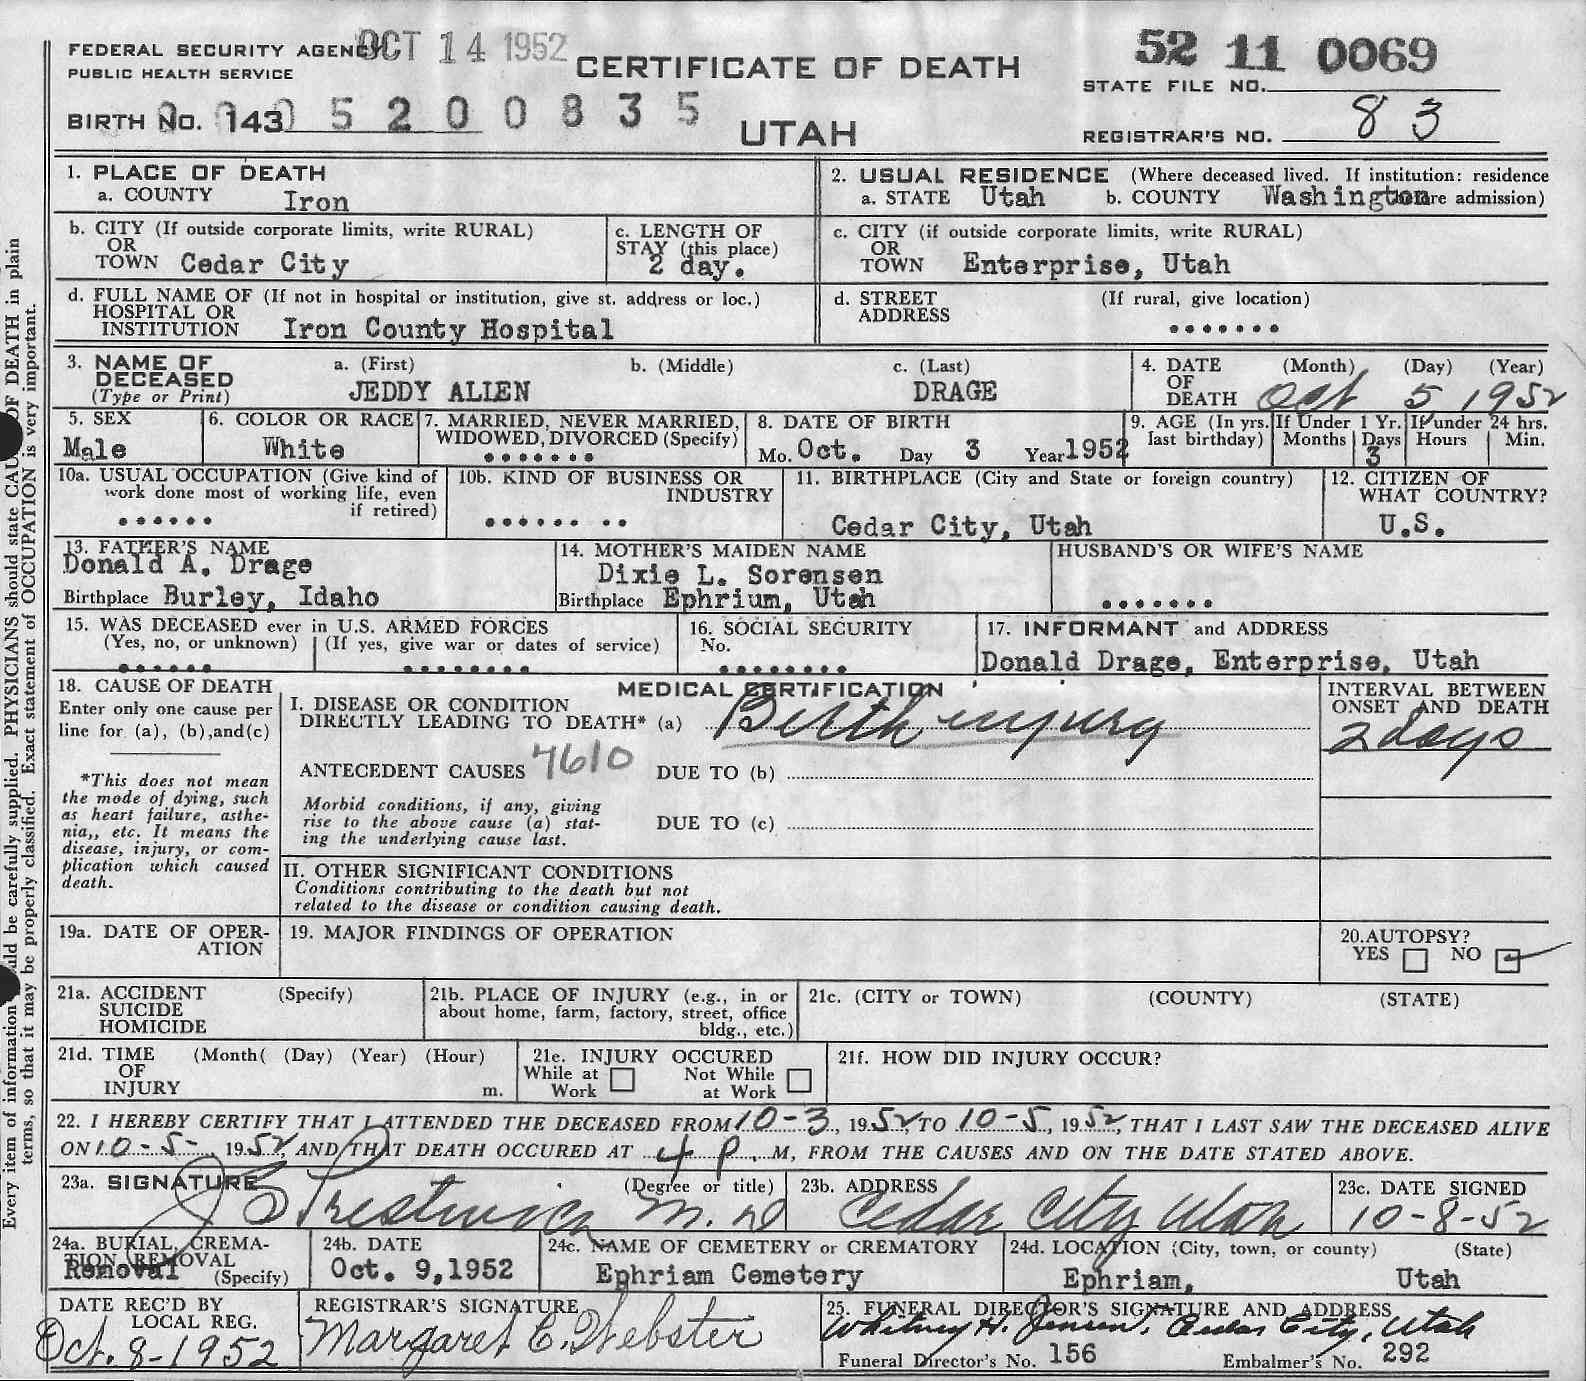 FEDERAL SECURITY AGENCY OCT 14 1952
PUBLIC HEALTH SERVICE
CERTIFICATE OF DEATH
52 11 0069
STATE FILE NO.
BIRTH No. 143 5 2 0 0 8 3 5
UTAH
REGISTRAR'S NO. 83
1. PLACE OF DEATH
a. COUNTY Iron
2. USUAL RESIDENCE (Where deceased lived. If institution: residence
a. STATE Utah b. COUNTY Washington before admission)
b. CITY (If outside corporate limits, write RURAL)
OR
TOWN Cedar City
c. LENGTH OF
STAY (this place)
2 day.
c. CITY (if outside corporate limits, write RURAL)
OR
TOWN Enterprise, Utah
d. FULL NAME OF (If not in hospital or institution, give st. address or loc.)
HOSPITAL OR
INSTITUTION Iron County Hospital
d. STREET (If rural, give location)
ADDRESS .......
3. NAME OF a. (First) b. (Middle) c. (Last)
DECEASED
(Type or Print) JEDDY ALIEN DRAGE
4. DATE (Month) (Day) (Year)
OF
DEATH Oct 5 1952
5. SEX
Male
6. COLOR OR RACE
White
7. MARRIED, NEVER MARRIED,
WIDOWED, DIVORCED (Specify)
.......
8. DATE OF BIRTH
Mo. Oct. Day 3 Year 1952
9. AGE (In yrs. last birthday)
If Under 1 Yr.
Months Days
3
If under 24 hrs.
Hours Min.
10a. USUAL OCCUPATION (Give kind of
work done most of working life, even
if retired)
......
10b. KIND OF BUSINESS OR
INDUSTRY
...... ..
11. BIRTHPLACE (City and State or foreign country)
Cedar City, Utah
12. CITIZEN OF
WHAT COUNTRY?
U.S.
13. FATHER'S NAME
Donald A. Drage
Birthplace Burley, Idaho
14. MOTHER'S MAIDEN NAME
Dixie L. Sorensen
Birthplace Ephrium, Utah
HUSBAND'S OR WIFE'S NAME
.......
15. WAS DECEASED ever in U.S. ARMED FORCES
(Yes, no, or unknown) (If yes, give war or dates of service)
...... ........
16. SOCIAL SECURITY
No.
........
17. INFORMANT and ADDRESS
Donald Drage, Enterprise, Utah
18. CAUSE OF DEATH
Enter only one cause per
line for (a), (b), and(c)
*This does not mean
the mode of dying, such
as heart failure, asthe-
nia,, etc. It means the
disease, injury, or com-
plication which caused
death.
MEDICAL CERTIFICATION
I. DISEASE OR CONDITION
DIRECTLY LEADING TO DEATH* (a) Birth injury
ANTECEDENT CAUSES 7610 DUE TO (b)
Morbid conditions, if any, giving
rise to the above cause (a) stat-
ing the underlying cause last.
DUE TO (c)
II. OTHER SIGNIFICANT CONDITIONS
Conditions contributing to the death but not
related to the disease or condition causing death.
INTERVAL BETWEEN
ONSET AND DEATH
2 days
19a. DATE OF OPER-
ATION
19. MAJOR FINDINGS OF OPERATION
20. AUTOPSY?
YES NO
21a. ACCIDENT (Specify)
SUICIDE
HOMICIDE
21b. PLACE OF INJURY (e.g., in or
about home, farm, factory, street, office
bldg., etc.)
21c. (CITY or TOWN) (COUNTY) (STATE)
21d. TIME (Month( (Day) (Year) (Hour)
OF
INJURY m.
21e. INJURY OCCURED
While at Work Not While at Work
21f. HOW DID INJURY OCCUR?
22. I HEREBY CERTIFY THAT I ATTENDED THE DECEASED FROM 10-3, 1952, TO 10-5, 1952, THAT I LAST SAW THE DECEASED ALIVE
ON 10-5-, 1952, AND THAT DEATH OCCURED AT 4 P. M, FROM THE CAUSES AND ON THE DATE STATED ABOVE.
23a. SIGNATURE (Degree or title)
J S Prestwich M.D
23b. ADDRESS
Cedar City Utah
23c. DATE SIGNED
10-8-52
24a. BURIAL, CREMA-
TION, REMOVAL
Removal (Specify)
24b. DATE
Oct. 9,1952
24c. NAME OF CEMETERY or CREMATORY
Ephriam Cemetery
24d. LOCATION (City, town, or county) (State)
Ephriam, Utah
DATE REC'D BY
LOCAL REG.
Oct. 8-1952
REGISTRAR'S SIGNATURE
Margaret E. Webster
25. FUNERAL DIRECTOR'S SIGNATURE AND ADDRESS
Whitney H. Jensen, Cedar City, Utah
Funeral Director's No. 156 Embalmer's No. 292
uld be carefully supplied. PHYSICIANS should state CAUSE OF DEATH in plain
Every item of information
terms, so that it may be properly classified. Exact statement of OCCUPATION is very important.